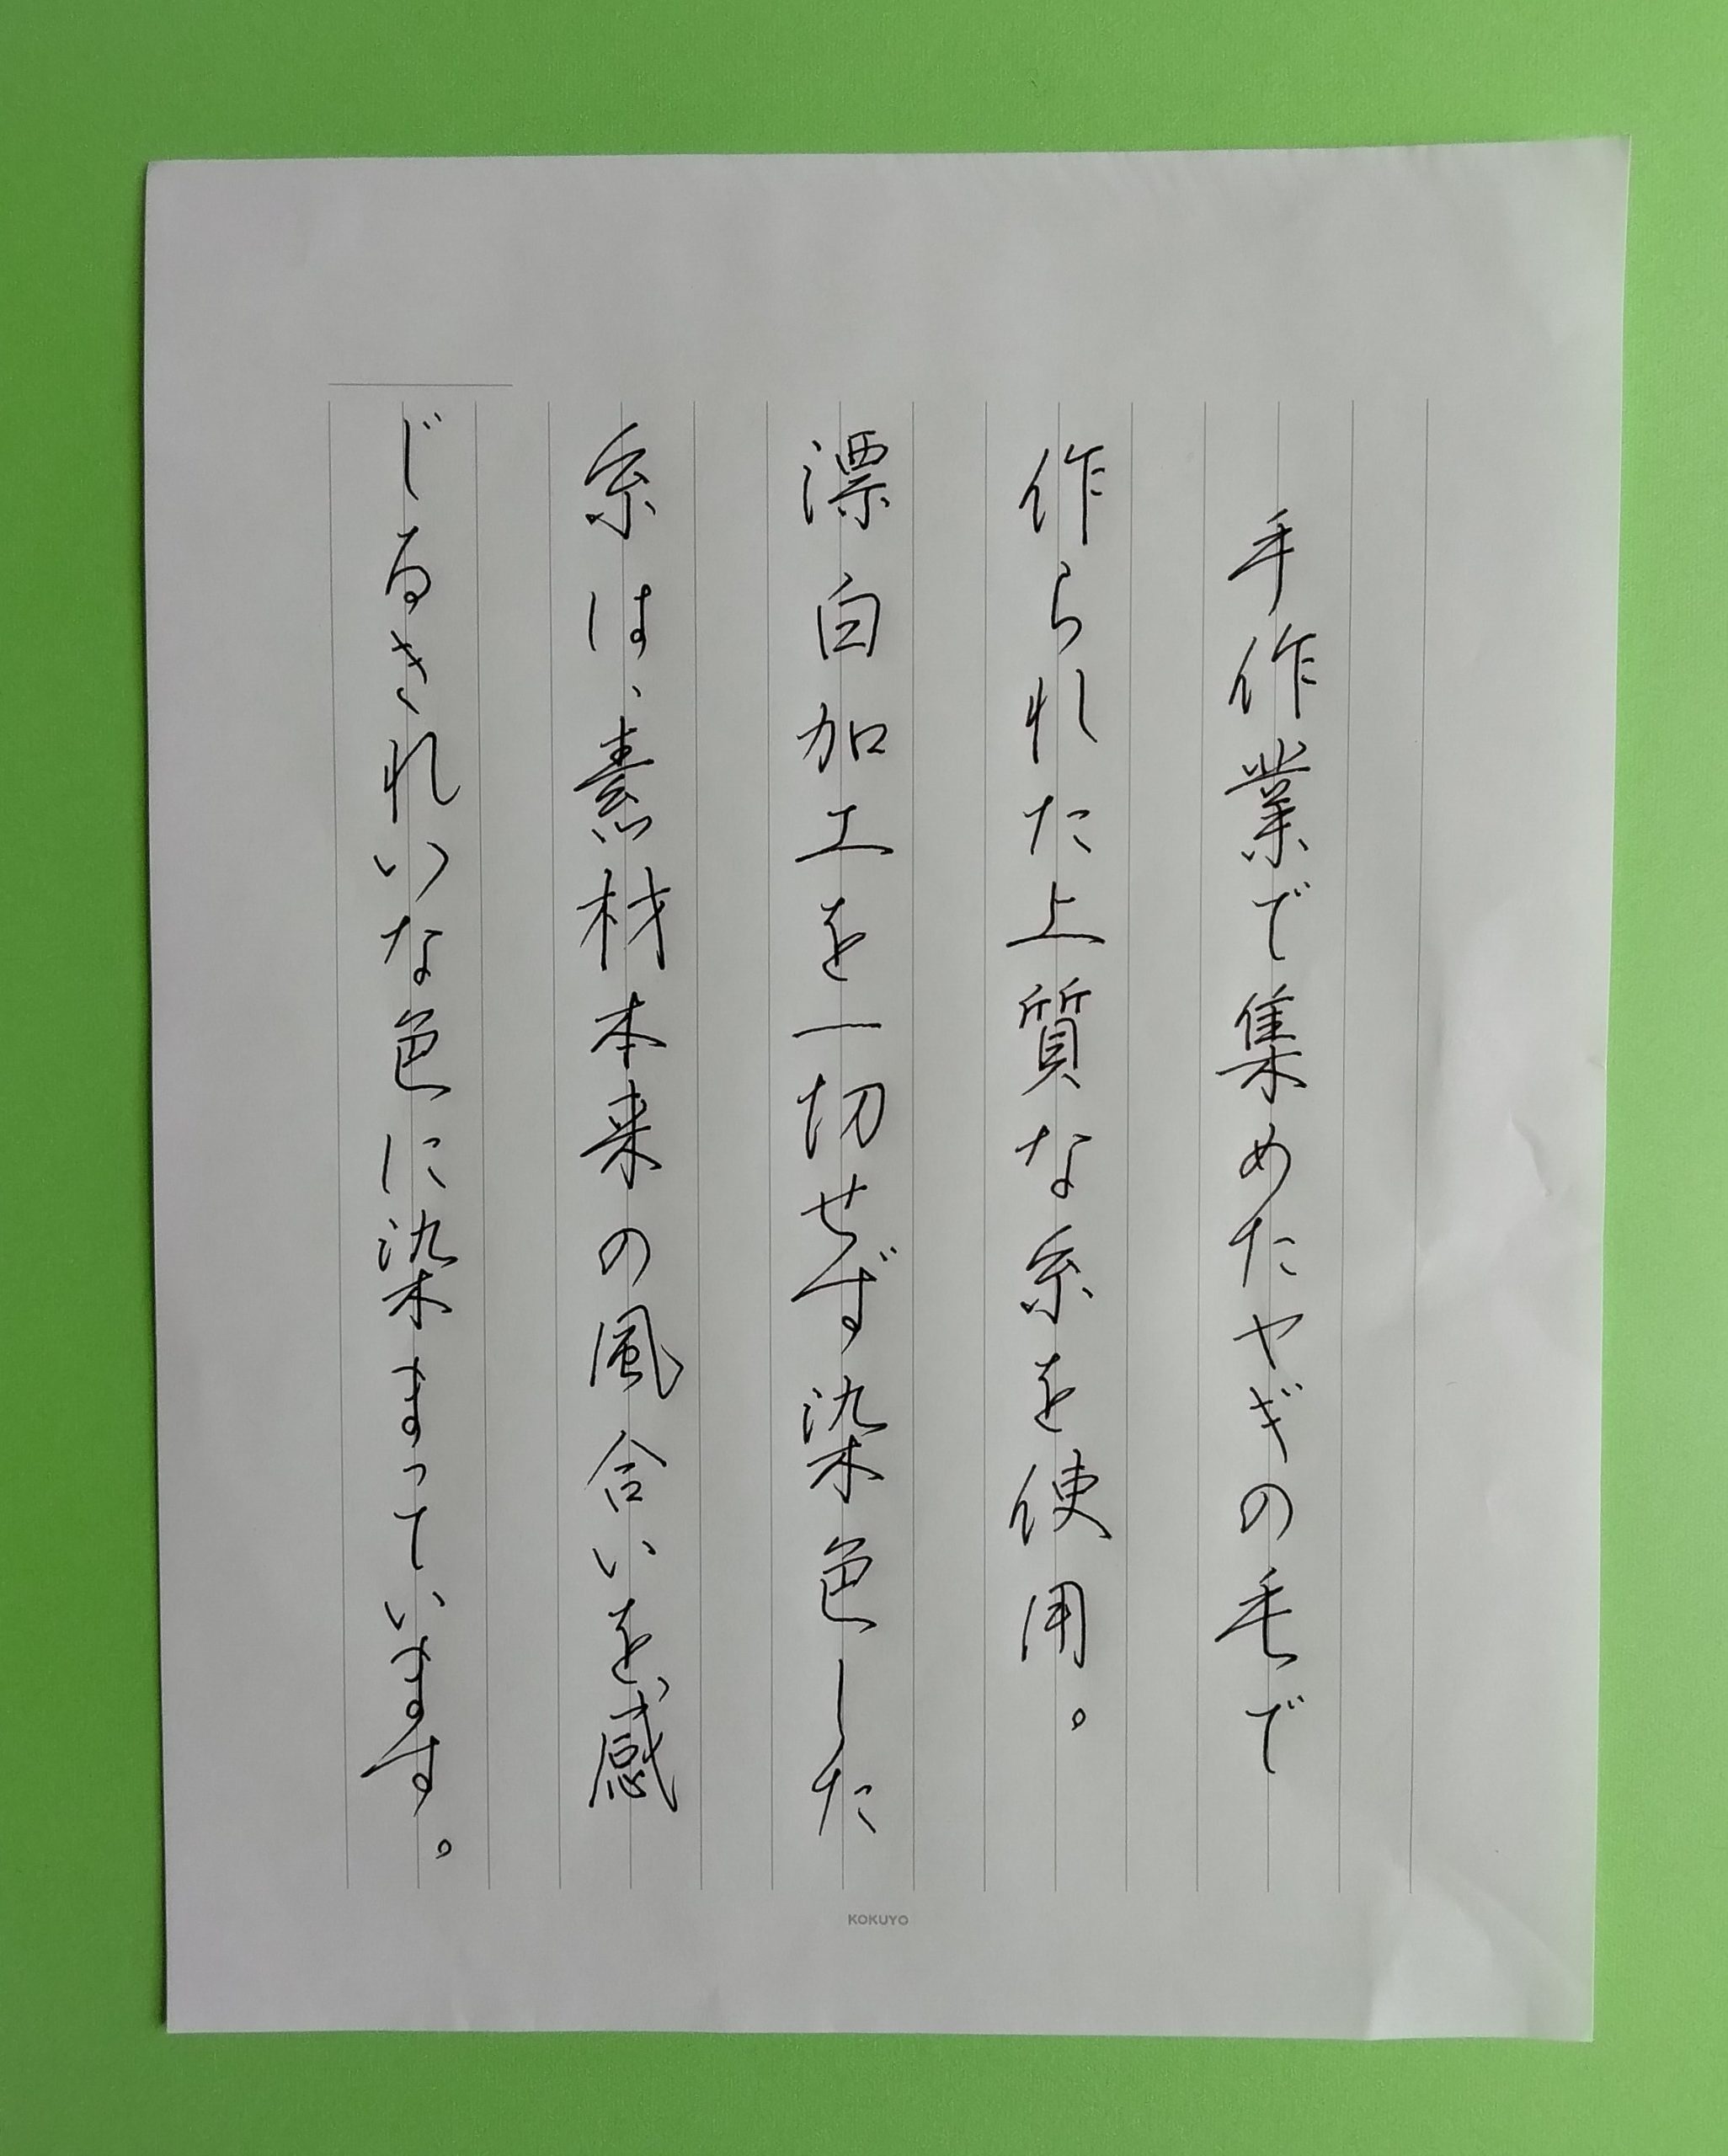 手作業で集めたヤギの毛で
作られた上質な糸を使用。
漂白加工を一切せず染色した
糸は、素材本来の風合いを感
じるきれいな色に染まっています。
KOKUYO